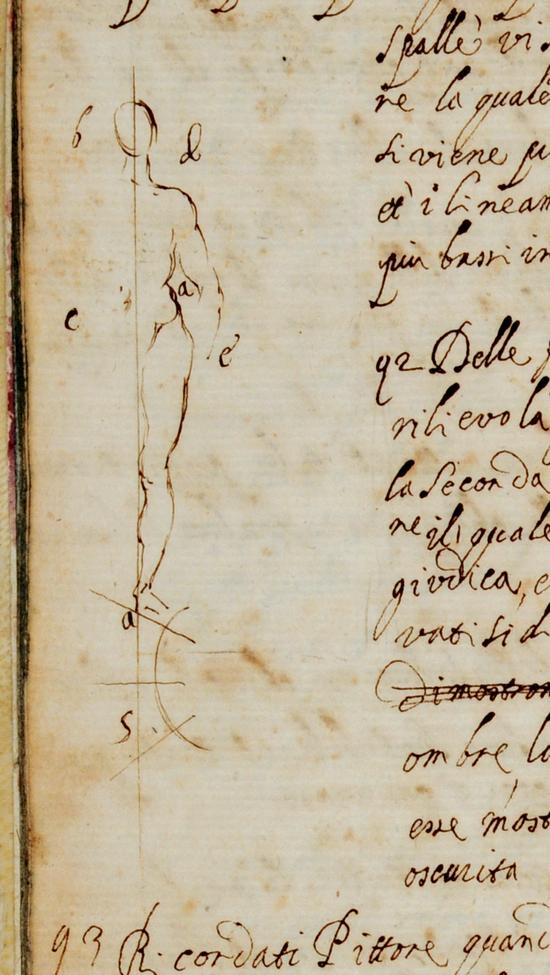 spalle vi
ne la quale
si viene
b d
et i lineam
a
più bassi in
c
e
92 Delle
rilievo la
la Seconda
ne il quale
giudica, e
a
vati si d
dimostran
S
ombre la
esse most
oscurita
93 R. cordati Pittore quand